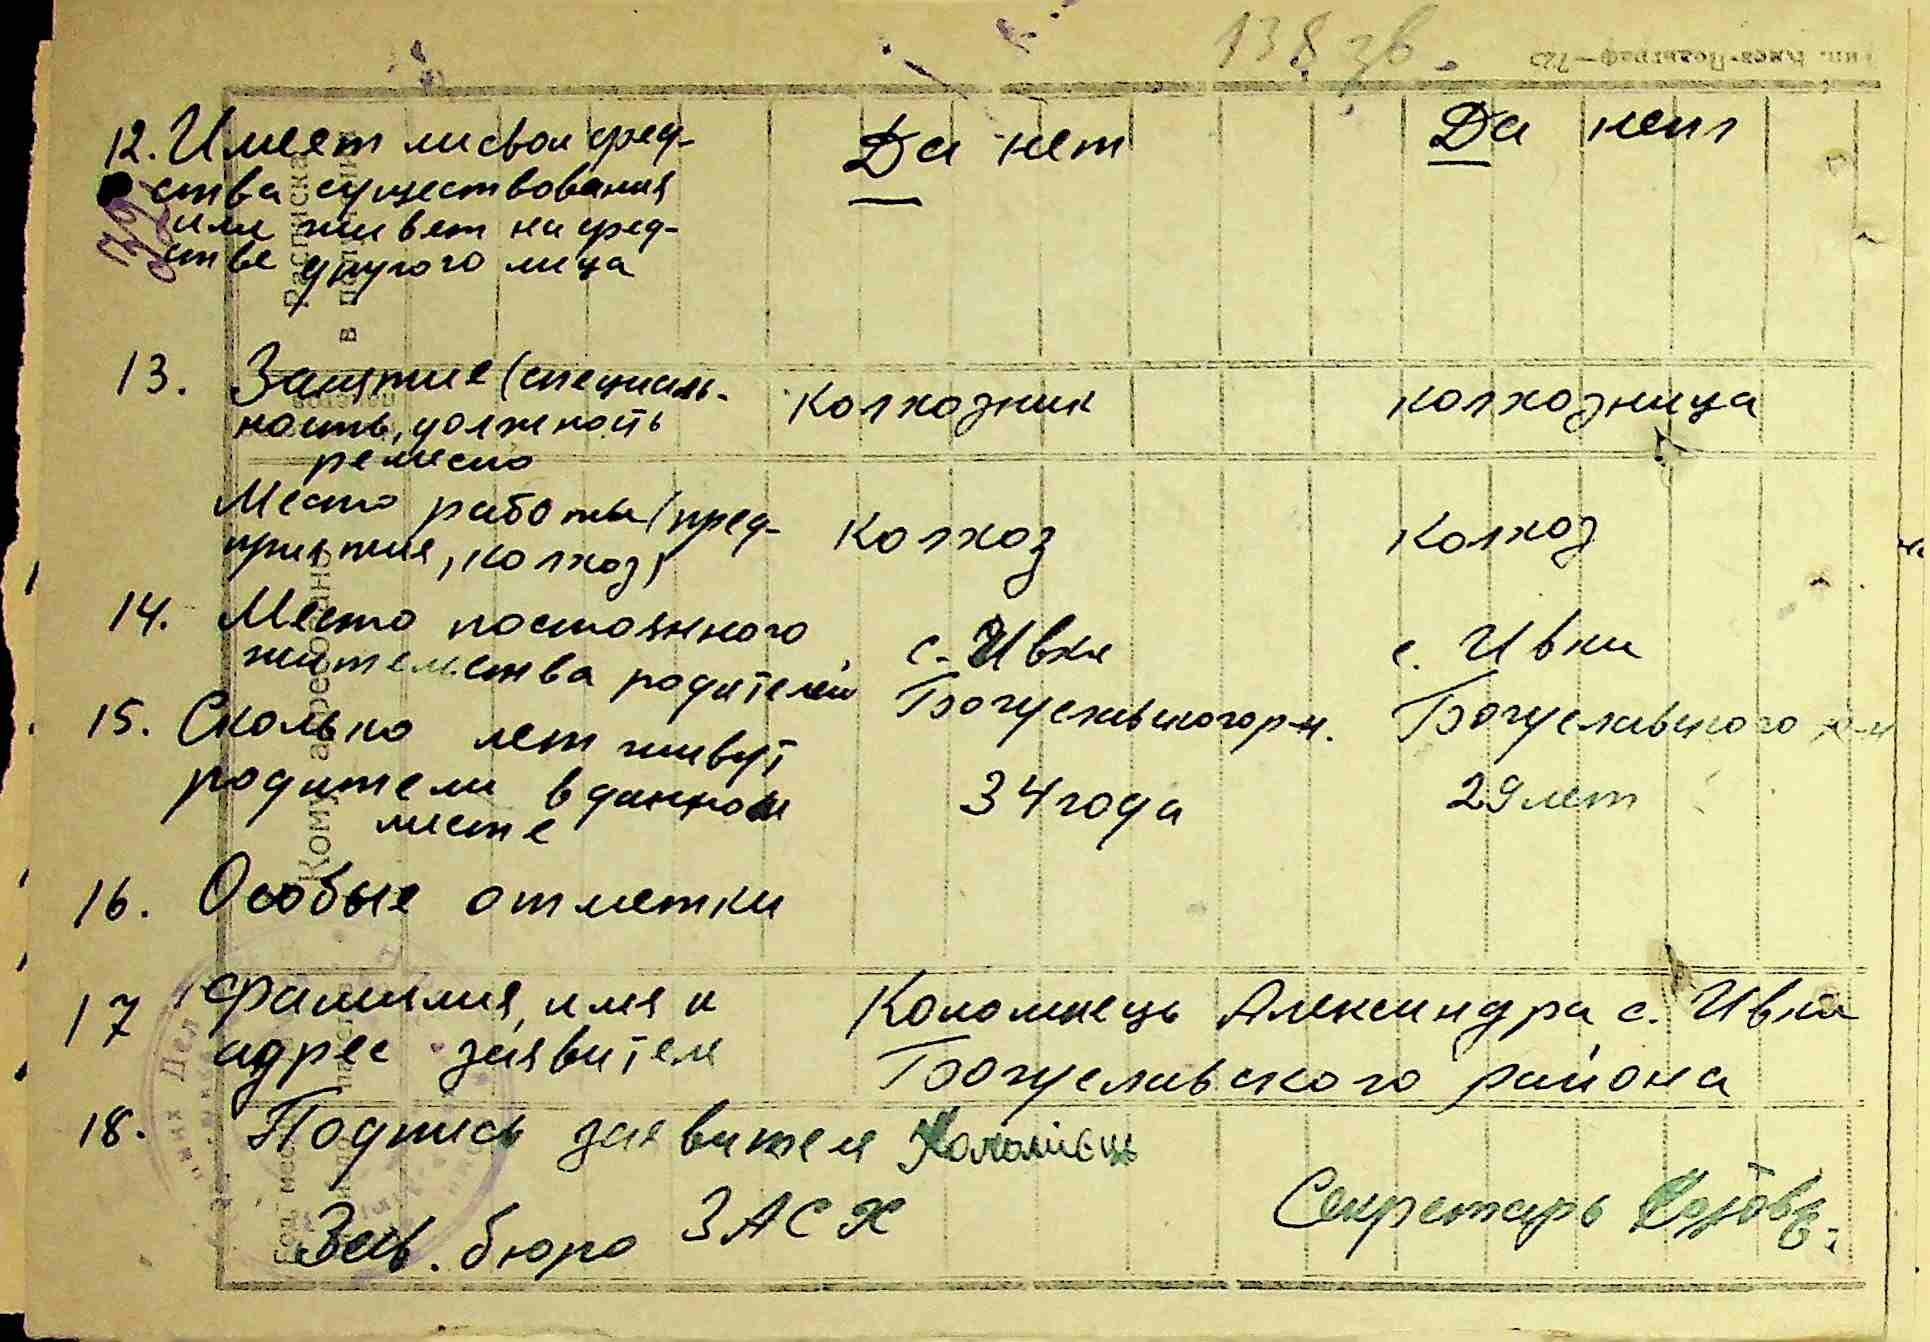 138 зв.
12. Имеет ли свои сред- Да нет Да нет
ства существования
или живет на сред-
стве другого лица
13. Занятие (специаль- колхозник колхозница
ность, должность
ремесло
Место работы (пред- Колхоз Колхоз
приятие, колхоз)
14. Место постоянного с. Ивки с. Ивки
жительства родителей Богуславского р-н. Богуславского р-н
15. Сколько лет живут
родители в данном 34 года 29 лет
месте
16. Особые отметки
17 Фамилия, имя и Коломиець Александра с. Ивки
адрес заявителя Богуславского района
18. Подпись заявителя Коломієць
Зав. бюро ЗАСХ Секретарь